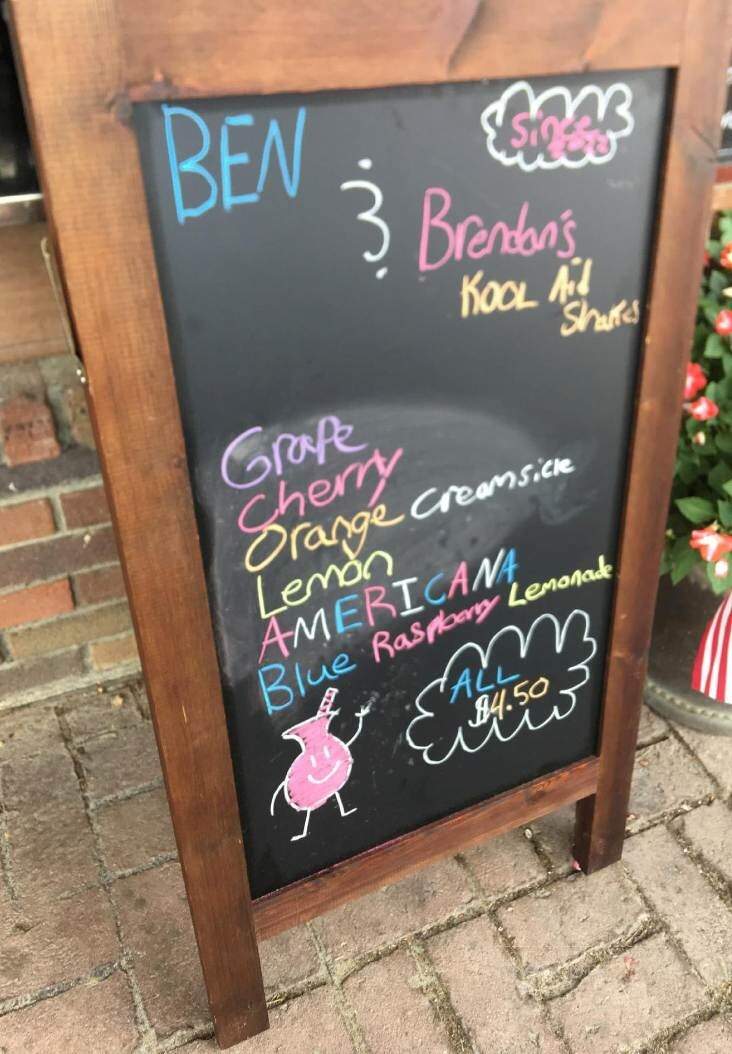 BEN
Since
&
Brendan's
KOOL Aid
Shakes
Grape
Cherry
Orange Creamsicle
Lemon
AMERICANA
Blue Raspberry Lemonade
ALL
$4.50